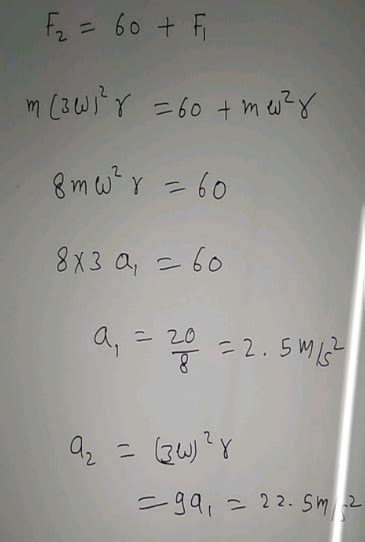 F₂ = 60 + F₁
m(3ω)² r = 60 + mω² r
8mω² r = 60
8×3 a₁ = 60
a₁ = 20/8 = 2.5 m/s²
a₂ = (3ω)² r
= 9a₁ = 22.5 m/s²